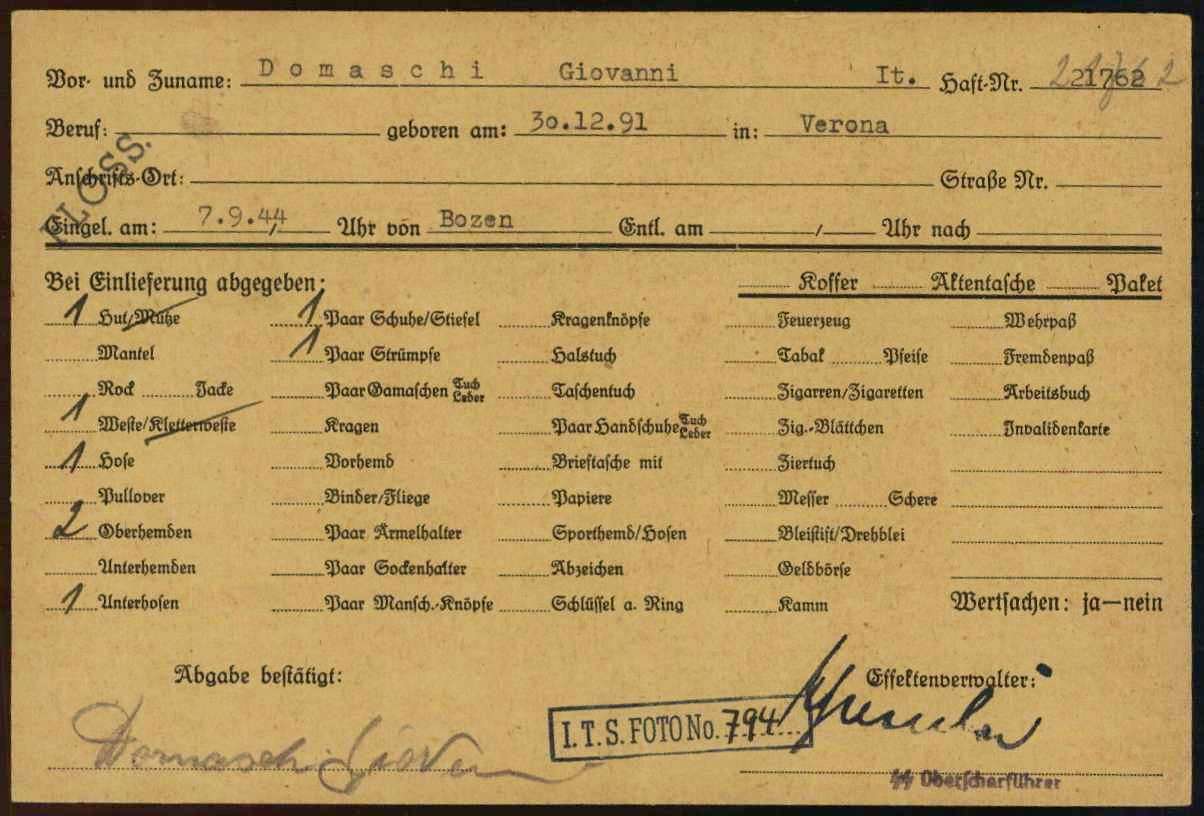 Vor- und Zuname: Domaschi Giovanni It. Haft-Nr. 21762
Beruf: geboren am: 3o.12.91 in: Verona
FLOSS.
Anschrifts-Ort: Straße Nr.
Eingel. am: 7.9.44 Uhr von Bozen Entl. am / Uhr nach
Bei Einlieferung abgegeben: Koffer Aktentasche Paket
1 Hut/Mütze 1 Paar Schuhe/Stiefel Kragenknöpfe Feuerzeug Wehrpaß
Mantel 1 Paar Strümpfe Halstuch Tabak Pfeife Fremdenpaß
Rock Jacke Paar Gamaschen Tuch Leder Taschentuch Zigarren/Zigaretten Arbeitsbuch
1 Weste/Kletterweste Kragen Paar Handschuhe Tuch Leder Zig.-Blättchen Invalidenkarte
1 Hose Vorhemd Brieftasche mit Ziertuch
Pullover Binder/Fliege Papiere Messer Schere
2 Oberhemden Paar Ärmelhalter Sporthemd/Hosen Bleistift/Drehblei
Unterhemden Paar Sockenhalter Abzeichen Geldbörse
1 Unterhosen Paar Mansch.-Knöpfe Schlüssel a. Ring Kamm Wertsachen: ja—nein
Abgabe bestätigt: Effektenverwalter:
Domaschi Giovanni
I.T.S. FOTO No. 794
SS Oberscharführer